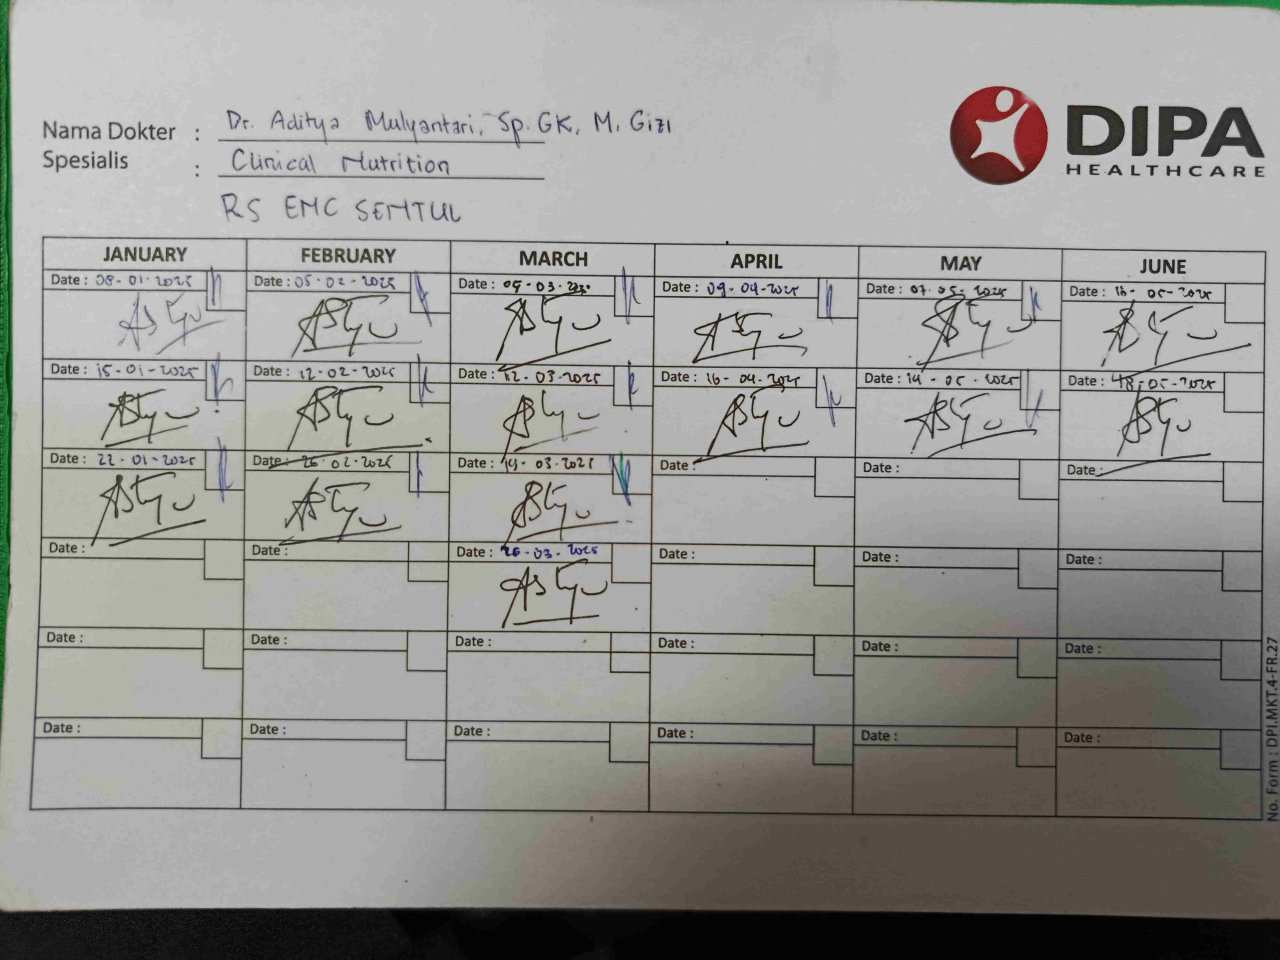 Nama Dokter : Dr. Aditya Mulyantari, Sp.GK, M. Gizi
Spesialis : Clinical Nutrition
RS EMC SENTUL
DIPA
HEALTHCARE
JANUARY FEBRUARY MARCH APRIL MAY JUNE
Date : 08-01-2025 Date : 05-02-2025 Date : 05-03- Date : 09-04-2025 Date : 07-05-2025 Date : -05-2025
Date : 15-01-2025 Date : 12-02-2025 Date : 12-03-2025 Date : 16-04-2025 Date : 14-05-2025 Date : -05-2025
Date : 22-01-2025 Date : 26-02-2025 Date : 19-03-2025 Date : Date : Date :
Date : Date : Date : 26-03-2025 Date : Date : Date :
Date : Date : Date : Date : Date : Date :
Date : Date : Date : Date : Date : Date :
No. Form : DPI.MKT.4-FR.27